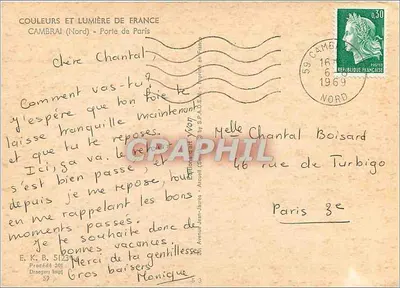 COULEURS ET LUMIÈRE DE FRANCE
CAMBRAI (Nord) - Porte de Paris
Chère Chantal,
Comment vas-tu?
J'espère que ton foie te
laisse tranquille maintenant
et que tu te reposes.
Ici, ça va. Le retour
s'est bien passé, et
depuis je me repose, tout
en me rappelant les bons
moments passés.
Je te souhaite donc de
bonnes vacances.
Merci de ta gentillesse
Gros baisers
Monique
E. K. B.
Procédé
59 CAMBRAI
16
6
1969
NORD
0,30
REPUBLIQUE FRANÇAISE
Melle Chantal Boisard
46 rue de Turbigo
Paris 3e
CPAPHIL